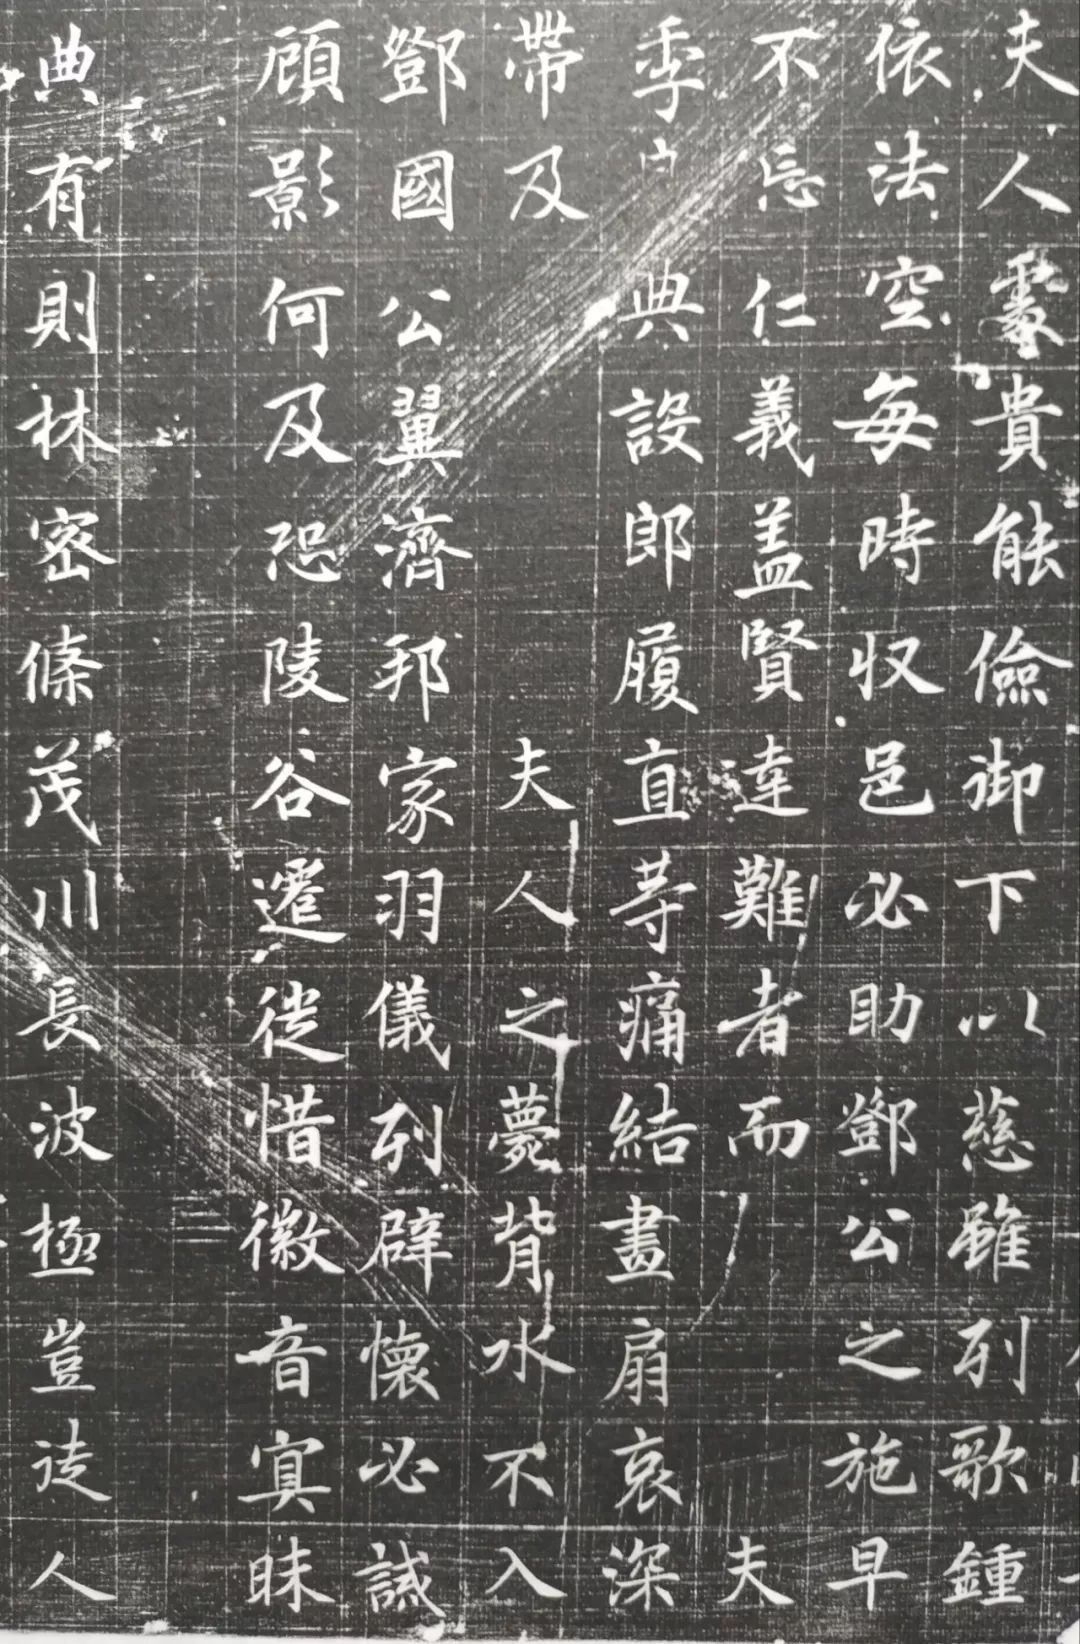 夫人處貴能儉御下以慈雖列歌鍾
依法空每時収邑必助鄧公之施早
不忘仁義盖賢達難者而夫
季典設郎履直等痛結畫扇哀深
帶及夫人之薨背水不入
鄧國公翼濟邦家羽儀列辟懷必誠
顧影何及恐陵谷遷徙惜徽音寘昧
典有則林密條茂川長波極豈徒人